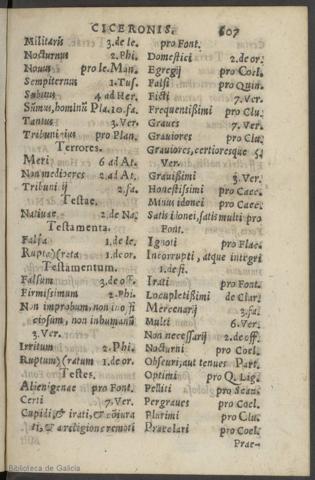 CICERONIS. 607
Militaris 3.de le.
Nocturnus 2.Phi.
Nouus pro le.Man.
Sempiternus 1.Tus.
Subitus 4 ad Her.
Sũmus, hominũ Pla.10.fa.
Tantus 3.Ver.
Tribunitius pro Plan.
Terrores.
Meri 6 ad At.
Non mediocres 2.ad At.
Tribunitij 2.fa.
Testae.
Natiuae 2.de Na.
Testamenta.
Falsa 1.de le.
Rupta)(rata 1.de or.
Testamentum.
Falsum 3.de off.
Firmissimum 2.Phi.
Non improbum, non inofficiosum, non inhumanũ
3.Ver.
Irritum 2.Phi.
Ruptum)(ratum 1.de or.
Testes.
Alienigenae pro Font.
Certi 7.Ver.
Cupidi, & irati, & cõiura
ti, & a religione remoti
pro Font.
Domestici 2.de or.
Egregij pro Coel.
Falsi pro Quin.
Ficti 7.Ver.
Frequentissimi pro Clu.
Graues 7.Ver.
Grauiores pro Clu.
Grauiores, certioresque 5.
Ver.
Grauissimi 3.Ver.
Honestissimi pro Caec.
Minus idonei pro Caec.
Satis idonei, satis multi pro
Font.
Ignoti pro Flac.
Incorrupti, atque integri
1.de fi.
Irati pro Font.
Locupletissimi de Clar.
Mercenarij 3.fa.
Multi 6.Ver.
Non necessarij 2.de off.
Nocturni pro Coel.
Obscuri, aut tenues Part.
Optimi pro Q. Lig.
Pelliti pro Scau.
Pergraues pro Coel.
Plurimi pro Clu.
Praeclari pro Coel.
Prae-
Biblioteca de Galicia